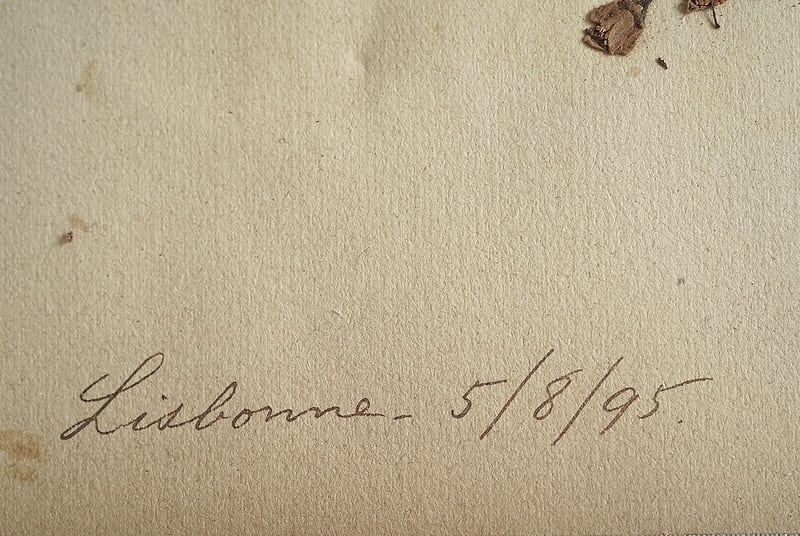 Lisbonne - 5/8/95.